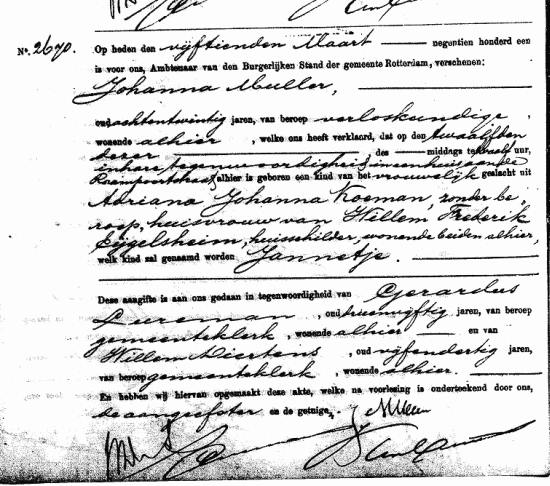 No. 2670. Op heden den vijftienden Maart negentien honderd een
is voor ons, Ambtenaar van den Burgerlijken Stand der gemeente Rotterdam, verschenen:
Johanna Muller,
oud achtentwintig jaren, van beroep verloskundige,
wonende alhier, welke ons heeft verklaard, dat op den twaalfden
dezer des middags te twaalf uur,
in hare tegenwoordigheid, in een huis aan de
Raampoortstraat alhier is geboren een kind van het vrouwelijk geslacht uit
Adriana Johanna Koeman, zonder be-
roep, huisvrouw van Willem Frederik
Eijgelsheim, huisschilder, wonende beiden alhier,
welk kind zal genaamd worden Jannetje.
Deze aangifte is aan ons gedaan in tegenwoordigheid van Gerardus
Lureman, oud tweenvijftig jaren, van beroep
gemeenteklerk, wonende alhier en van
Willem Miertens, oud vijfendertig jaren,
van beroep gemeenteklerk, wonende alhier.
En hebben wij hiervan opgemaakt deze akte, welke na voorlezing is onderteekend door ons,
de aangeefster en de getuige.